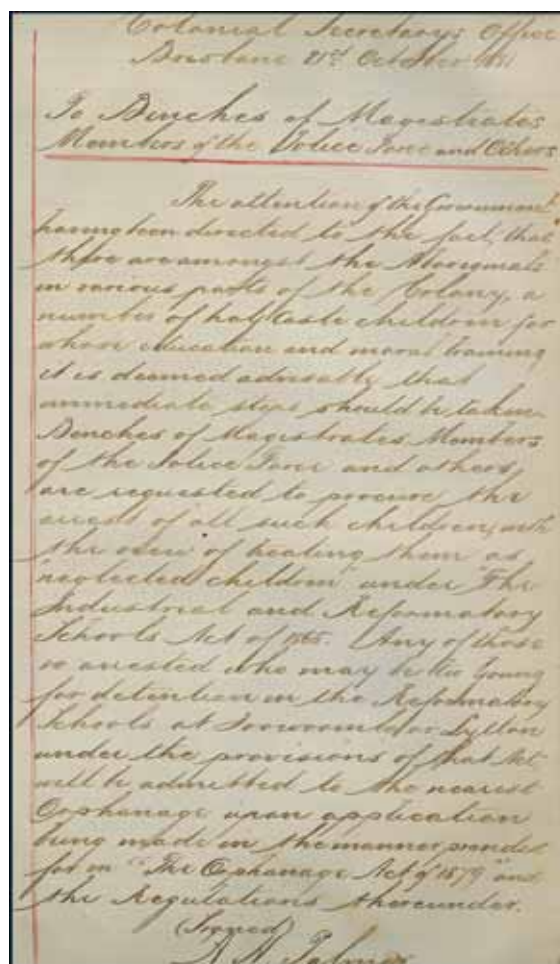 Colonial Secretary's Office
Brisbane 21st October 1881
To Benches of Magistrates
Members of the Police Force and Others
The attention of the Government
having been directed to the fact, that
there are amongst the Aboriginals
in various parts of the Colony, a
number of half caste children for
whose education and moral training
it is deemed advisable that
immediate steps should be taken
Benches of Magistrates Members
of the Police Force and others,
are requested to procure the
arrest of all such children, with
the view of treating them as
"neglected children" under "The
Industrial and Reformatory
Schools Act of 1865. Any of those
so arrested who may be too young
for detention in the Reformatory
Schools at Toowoomba or Lytton
under the provisions of that Act
will be admitted to the nearest
Orphanage upon application
being made in the manner provided
for in "The Orphanage Act of 1879" and
the Regulations thereunder.
(Signed)
A H Palmer